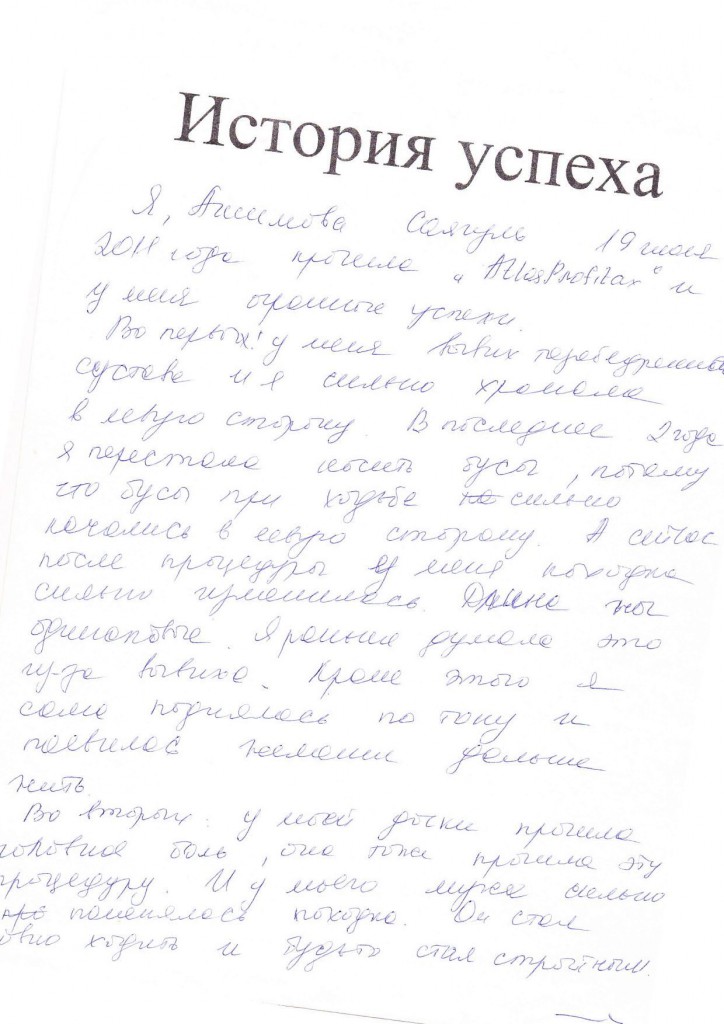 История успеха
Я, Ансимова Саягуль 19 июля
2011 года прошла „AtlasProfilax“ и
у меня огромные успехи.
Во первых! у меня вывих тазобедренного
сустава и я сильно хромала
в левую сторону. В последнее 2 года
я перестала носить бусы, потому
что бусы при ходьбе сильно
качались в левую сторону. А сейчас
после процедуры у меня походка
сильно изменилась. Длина ног
одинаковые. Я раньше думала это
из-за вывиха. Кроме этого я
сама поднялась по тону и
появилась желание дальше
жить.
Во вторых: у моей дочки прошла
головная боль, она тоже прошла эту
процедуру. И у моего мужа сильно
поменялась походка. Он стал
ровно ходить и будьто стал стройным.